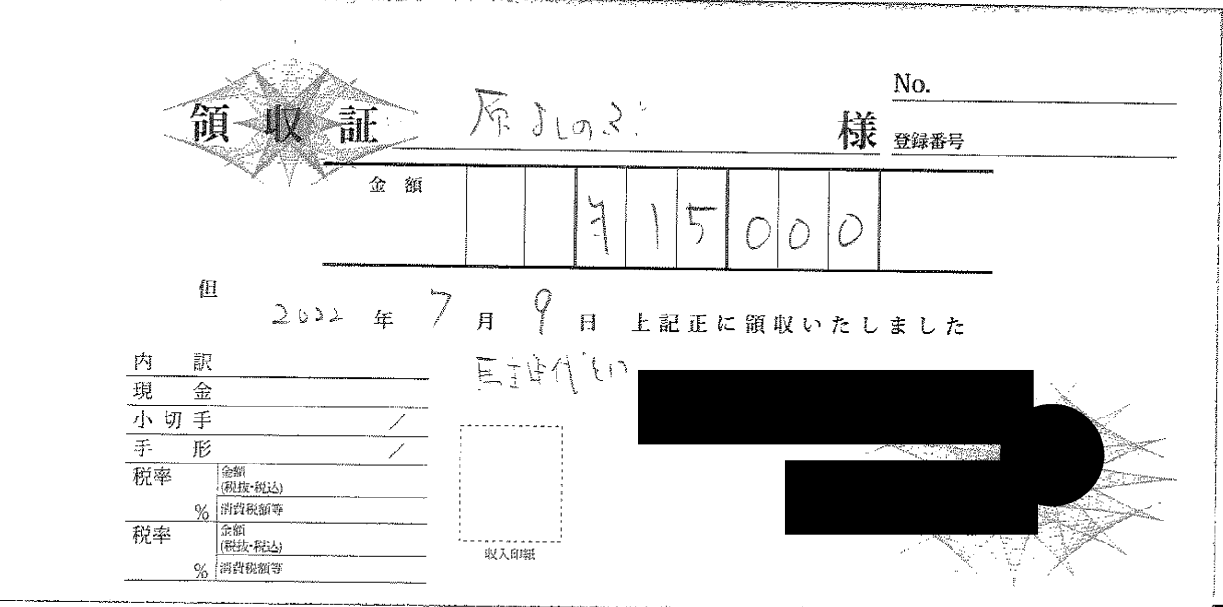 領収証
原よしのぶ 様
No.
登録番号
金額 ¥15000
但
2022年7月9日 上記正に領収いたしました
内訳
現金
小切手 /
手形 /
税率 %
金額(税抜・税込)
消費税額等
税率 %
金額(税抜・税込)
消費税額等
収入印紙